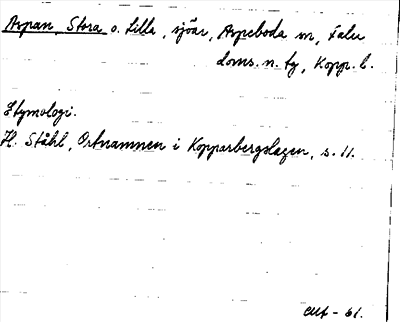 Arpan, Stora o. Lilla, sjöar, Aspeboda sn, Falu
doms. n. tg, Kopp. l.
Etymologi.
H. Ståhl, Ortnamnen i Kopparbergslagen, s. 11.